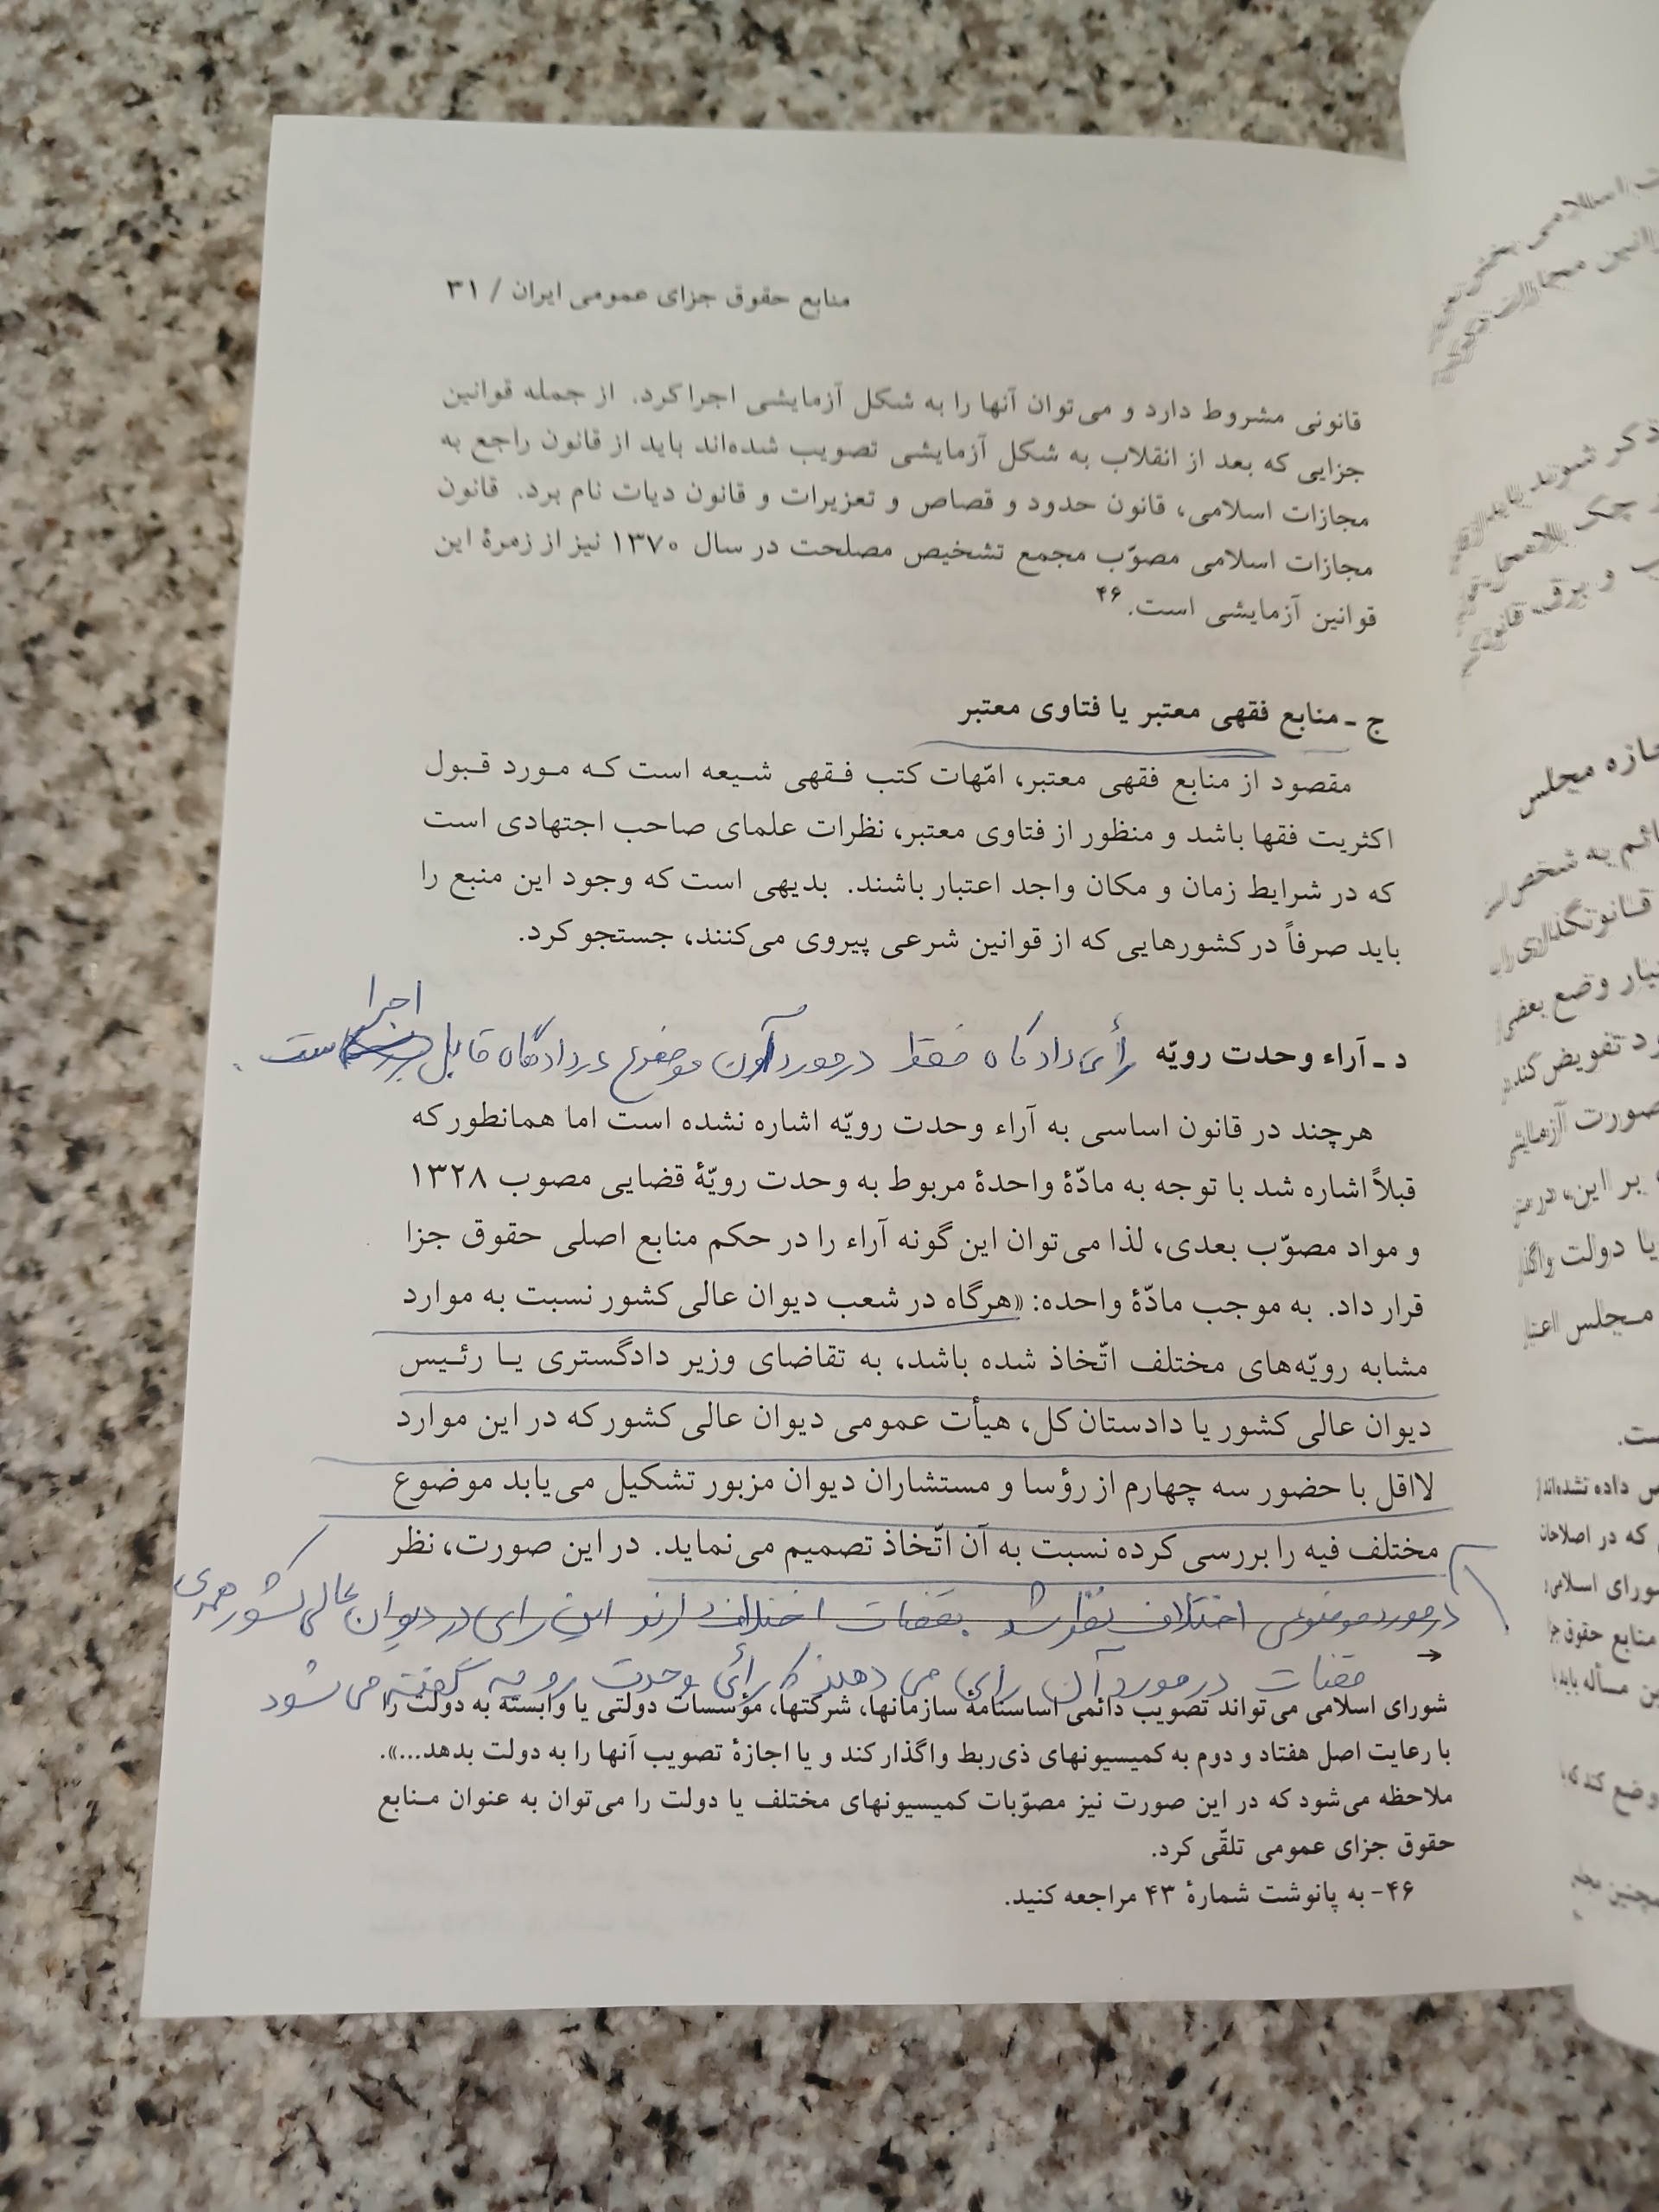 منابع حقوق جزای عمومی ایران / ۳۱
قانونی مشروط دارد و می‌توان آنها را به شکل آزمایشی اجرا کرد. از جمله قوانین
جزایی که بعد از انقلاب به شکل آزمایشی تصویب شده‌اند باید از قانون راجع به
مجازات اسلامی، قانون حدود و قصاص و تعزیرات و قانون دیات نام برد. قانون
مجازات اسلامی مصوّب مجمع تشخیص مصلحت در سال ۱۳۷۰ نیز از زمرهٔ این
قوانین آزمایشی است.۴۶
ج ـ منابع فقهی معتبر یا فتاوی معتبر
مقصود از منابع فقهی معتبر، امّهات کتب فقهی شیعه است که مورد قبول
اکثریت فقها باشد و منظور از فتاوی معتبر، نظرات علمای صاحب اجتهادی است
که در شرایط زمان و مکان واجد اعتبار باشند. بدیهی است که وجود این منبع را
باید صرفاً در کشورهایی که از قوانین شرعی پیروی می‌کنند، جستجو کرد.
اجرا
د ـ آراء وحدت رویّه رأی دادگاه فقط در مورد آون موضوع در دادگاه قابل است.
هرچند در قانون اساسی به آراء وحدت رویّه اشاره نشده است اما همانطور که
قبلاً اشاره شد با توجه به مادّهٔ واحدهٔ مربوط به وحدت رویّهٔ قضایی مصوب ۱۳۲۸
و مواد مصوّب بعدی، لذا می‌توان این گونه آراء را در حکم منابع اصلی حقوق جزا
قرار داد. به موجب مادّهٔ واحده: «هرگاه در شعب دیوان عالی کشور نسبت به موارد
مشابه رویّه‌های مختلف اتّخاذ شده باشد، به تقاضای وزیر دادگستری یا رئیس
دیوان عالی کشور یا دادستان کل، هیأت عمومی دیوان عالی کشور که در این موارد
لااقل با حضور سه چهارم از رؤسا و مستشاران دیوان مزبور تشکیل می‌یابد موضوع
مختلف فیه را بررسی کرده نسبت به آن اتّخاذ تصمیم می‌نماید. در این صورت، نظر
در مورد موضوعی اختلاف نظر اختلاف این رای در دیوان عالی کشور
قضات در مورد آن رای می دهند که رأی وحدت رویه گفته می شود
→
شورای اسلامی می‌تواند تصویب دائمی اساسنامهٔ سازمانها، شرکتها، مؤسسات دولتی یا وابسته به دولت را
با رعایت اصل هفتاد و دوم به کمیسیونهای ذی‌ربط واگذار کند و یا اجازهٔ تصویب آنها را به دولت بدهد...».
ملاحظه می‌شود که در این صورت نیز مصوّبات کمیسیونهای مختلف یا دولت را می‌توان به عنوان منابع
حقوق جزای عمومی تلقّی کرد.
۴۶- به پانوشت شمارهٔ ۴۳ مراجعه کنید.